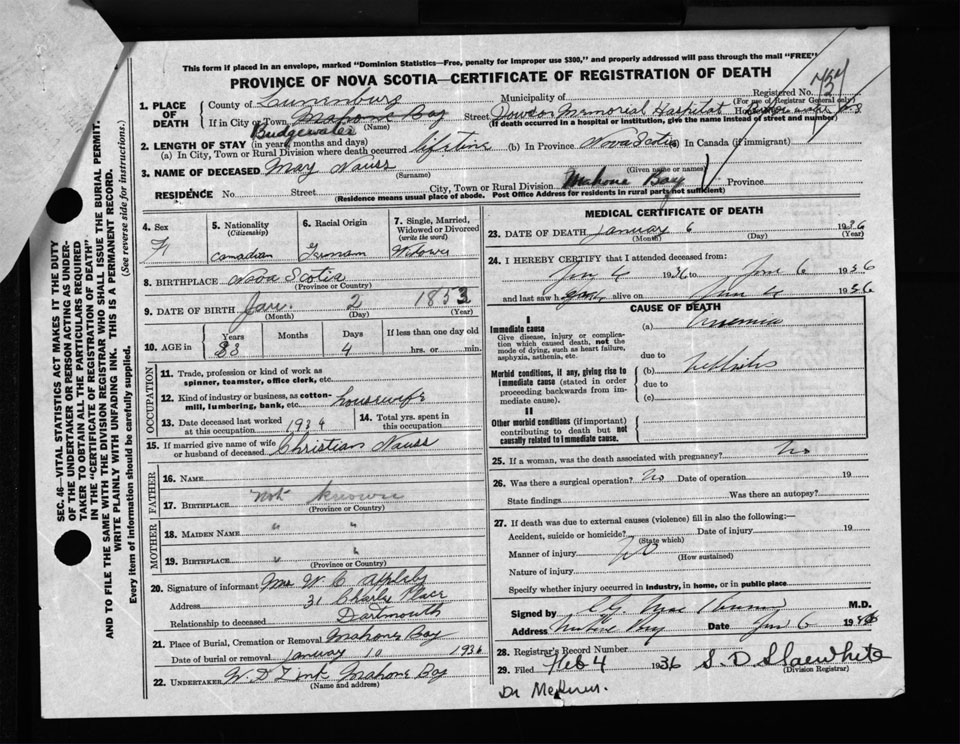 This form if placed in an envelope, marked "Dominion Statistics—Free, penalty for improper use $300," and properly addressed will pass through the mail "FREE"
PROVINCE OF NOVA SCOTIA—CERTIFICATE OF REGISTRATION OF DEATH
Registered No.
(For use of Registrar General only)
1. PLACE OF DEATH
County of Lunenburg Municipality of
If in City or Town, Mahone Bay Street Memorial Hospital
Bridgewater (Name) (If death occurred in a hospital or institution, give the name instead of street and number)
2. LENGTH OF STAY (in years, months and days)
(a) In City, Town or Rural Division where death occurred lifetime (b) In Province Nova Scotia (c) In Canada (if immigrant)
3. NAME OF DECEASED May Nauss
(Surname) (Given name or names)
RESIDENCE No. Street City, Town or Rural Division Mahone Bay Province
(Residence means usual place of abode. Post Office Address for residents in rural parts not sufficient)
4. Sex F
5. Nationality (Citizenship) Canadian
6. Racial Origin German
7. Single, Married, Widowed or Divorced (write the word) Widower
8. BIRTHPLACE Nova Scotia
(Province or Country)
9. DATE OF BIRTH Jan. 2 1853
(Month) (Day) (Year)
10. AGE in Years 83 Months Days 4 If less than one day old hrs. or min.
OCCUPATION
11. Trade, profession or kind of work as spinner, teamster, office clerk, etc.
12. Kind of industry or business, as cotton-mill, lumbering, bank, etc. housewife
13. Date deceased last worked at this occupation 1934
14. Total yrs. spent in this occupation
15. If married give name of wife or husband of deceased Christian Nauss
FATHER
16. NAME
17. BIRTHPLACE not known
(Province or Country)
MOTHER
18. MAIDEN NAME " "
19. BIRTHPLACE " "
(Province or Country)
20. Signature of informant Mrs W. C Appleby
Address 31 Charles Place
Relationship to deceased Dartmouth
21. Place of Burial, Cremation or Removal Mahone Bay
Date of burial or removal January 10 1936
22. UNDERTAKER W. D Zink Mahone Bay
(Name and address)
MEDICAL CERTIFICATE OF DEATH
23. DATE OF DEATH January 6 1936
(Month) (Day) (Year)
24. I HEREBY CERTIFY that I attended deceased from:
Jan 4 1936 to Jan 6 1936
and last saw h alive on Jan 4 1936
CAUSE OF DEATH
I
Immediate cause
Give disease, injury or complication which caused death, not the mode of dying, such as heart failure, asphyxia, asthenia, etc.
(a) Uremia
due to
Morbid conditions, if any, giving rise to immediate cause (stated in order proceeding backwards from immediate cause).
(b) Nephritis
due to
(c)
II
Other morbid conditions (if important) contributing to death but not causally related to immediate cause.
25. If a woman, was the death associated with pregnancy? No
26. Was there a surgical operation? No Date of operation 19
State findings Was there an autopsy?
27. If death was due to external causes (violence) fill in also the following:—
Accident, suicide or homicide? Date of injury 19
(State which)
Manner of injury No
(How sustained)
Nature of injury
Specify whether injury occurred in industry, in home, or in public place
Signed by M.D.
Address Mahone Bay Date Jan 6 1936
28. Registrar's Record Number
29. Filed Feb 4 1936 S. D Slaewhite
(Division Registrar)
SEC. 46—VITAL STATISTICS ACT MAKES IT THE DUTY
OF THE UNDERTAKER OR PERSON ACTING AS UNDER-
TAKER TO OBTAIN ALL THE PARTICULARS REQUIRED
IN THE "CERTIFICATE OF REGISTRATION OF DEATH"
AND TO FILE THE SAME WITH THE DIVISION REGISTRAR WHO SHALL ISSUE THE BURIAL PERMIT.
WRITE PLAINLY WITH UNFADING INK. THIS IS A PERMANENT RECORD.
Every item of information should be carefully supplied. (See reverse side for instructions.)